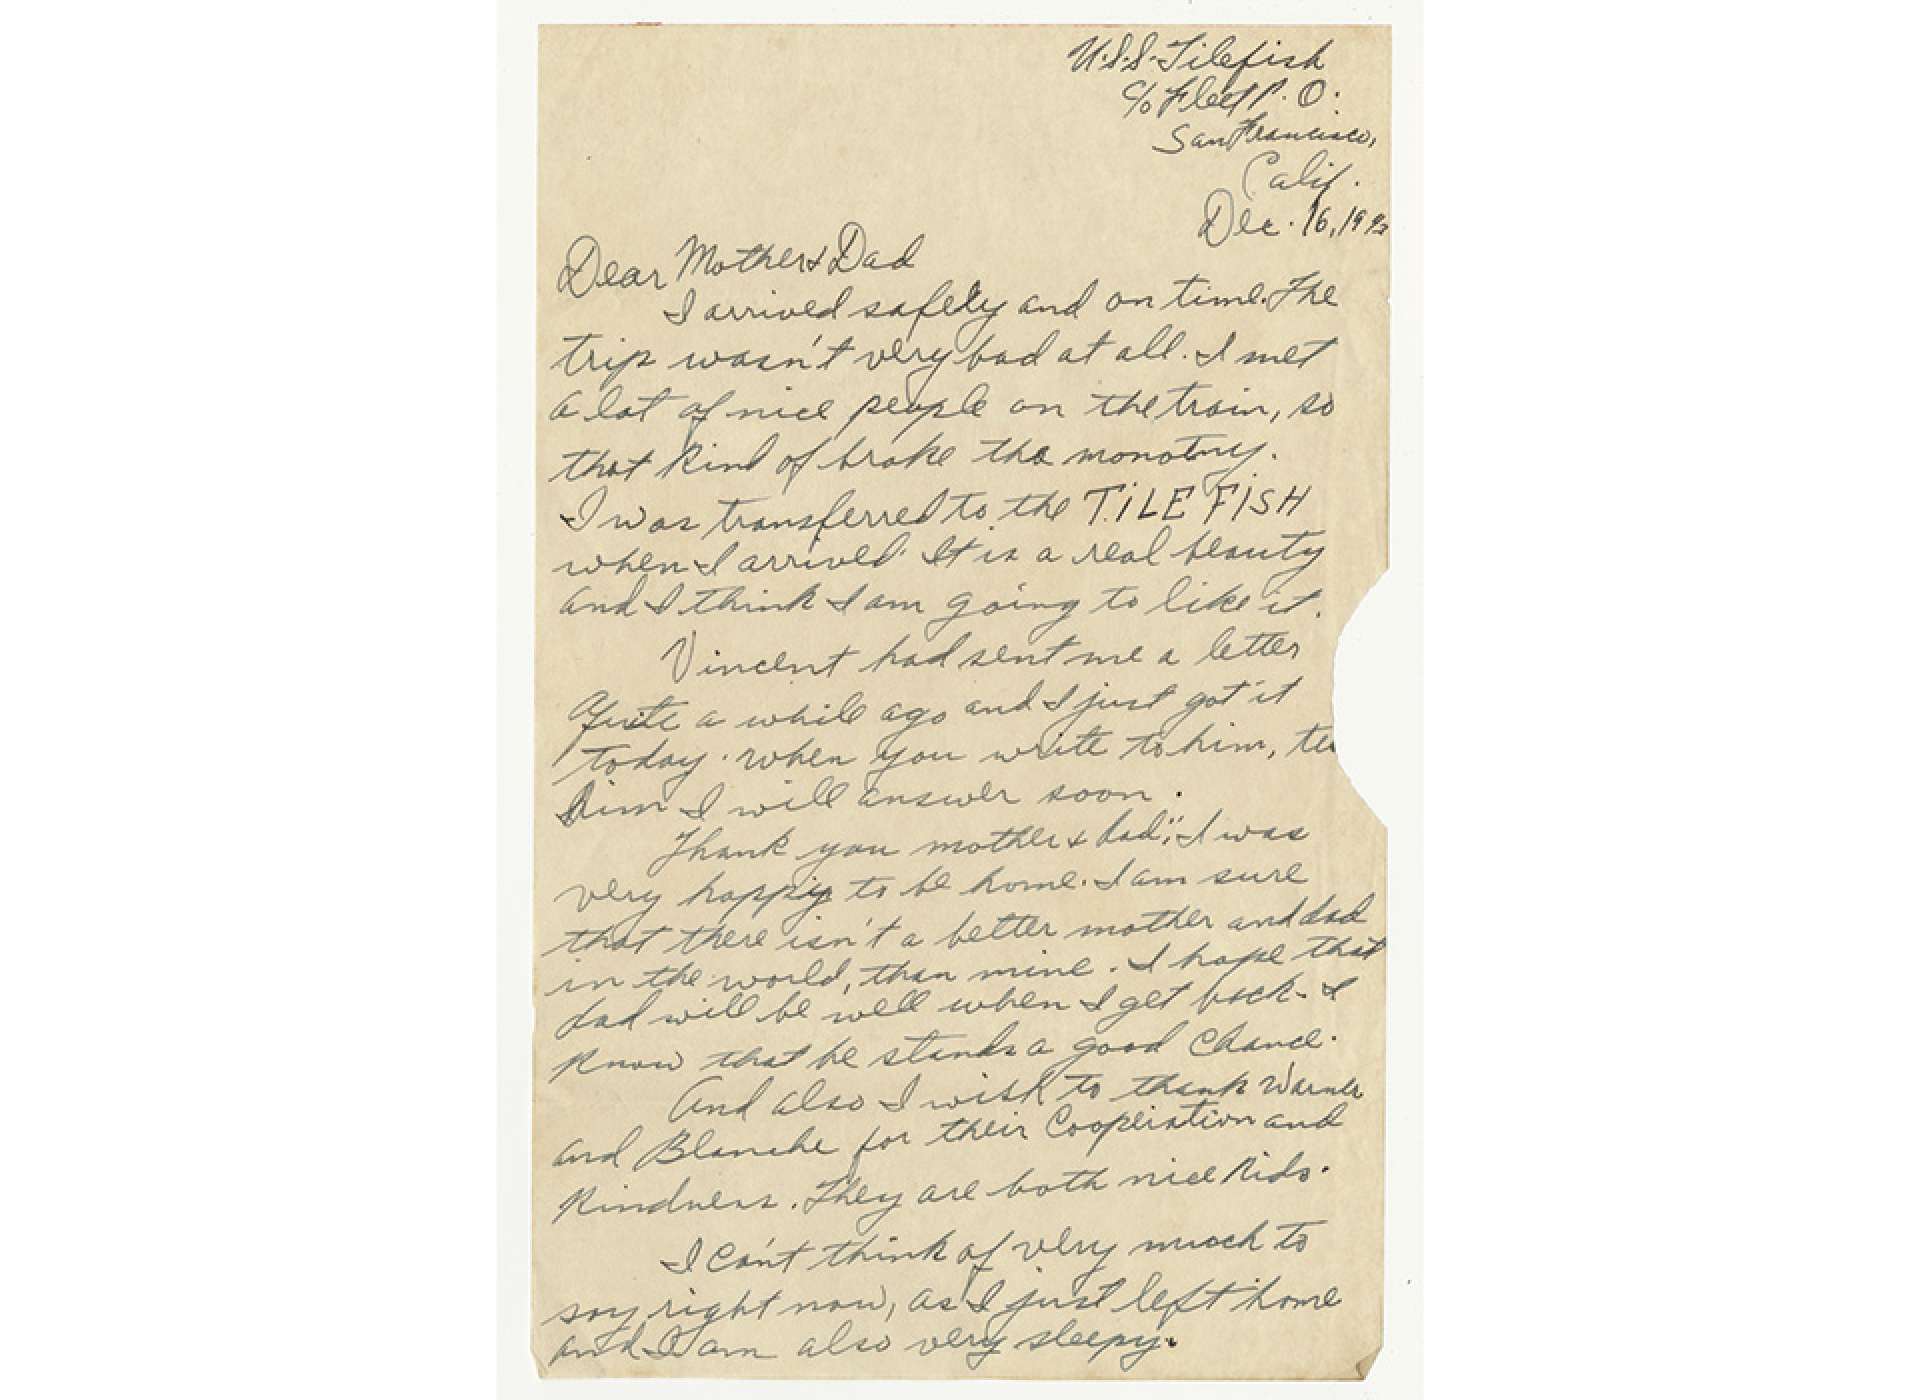 U.S.S. Tilefish
c/o Fleet P.O.
San Francisco,
Calif.
Dec. 16, 19
Dear Mother & Dad
I arrived safely and on time. The
trip wasn't very bad at all. I met
a lot of nice people on the train, so
that kind of broke the monotny.
I was transferred to the TiLE FiSH
when I arrived. It is a real beauty
and I think I am going to like it.
Vincent had sent me a letter
quite a while ago and I just got it
today. When you write to him, te
him I will answer soon.
Thank you mother & dad, I was
very happy to be home. I am sure
that there isn't a better mother and dad
in the world, than mine. I hope that
dad will be well when I get back. I
know that he stands a good chance.
And also I wish to thank Warner
and Blanche for their Cooperation and
kindness. They are both nice kids.
I can't think of very much to
say right now, as I just left home
and I am also very sleepy.